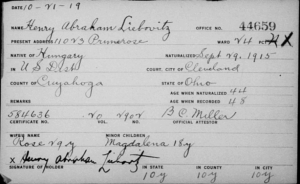 DATE 10-21-19
NAME Henry Abraham Liebovitz OFFICE NO. 44659
PRESENT ADDRESS 11023 Primrose WARD 24 PCT.
NATIVE OF Hungary NATURALIZED Sept 29, 1915
IN U S Dist COURT, CITY OF Cleveland
COUNTY OF Cuyahoga STATE OF Ohio
AGE WHEN NATURALIZED 44
REMARKS AGE WHEN RECORDED 48
584636 B C Miller
CERTIFICATE NO. OFFICIAL ATTESTOR
WIFE'S NAME MINOR CHILDREN
Rose 29 y Magdalena 18 y
x Henry Abraham
SIGNATURE OF HOLDER IN STATE IN COUNTY IN CITY
10 y 10 y 10 y